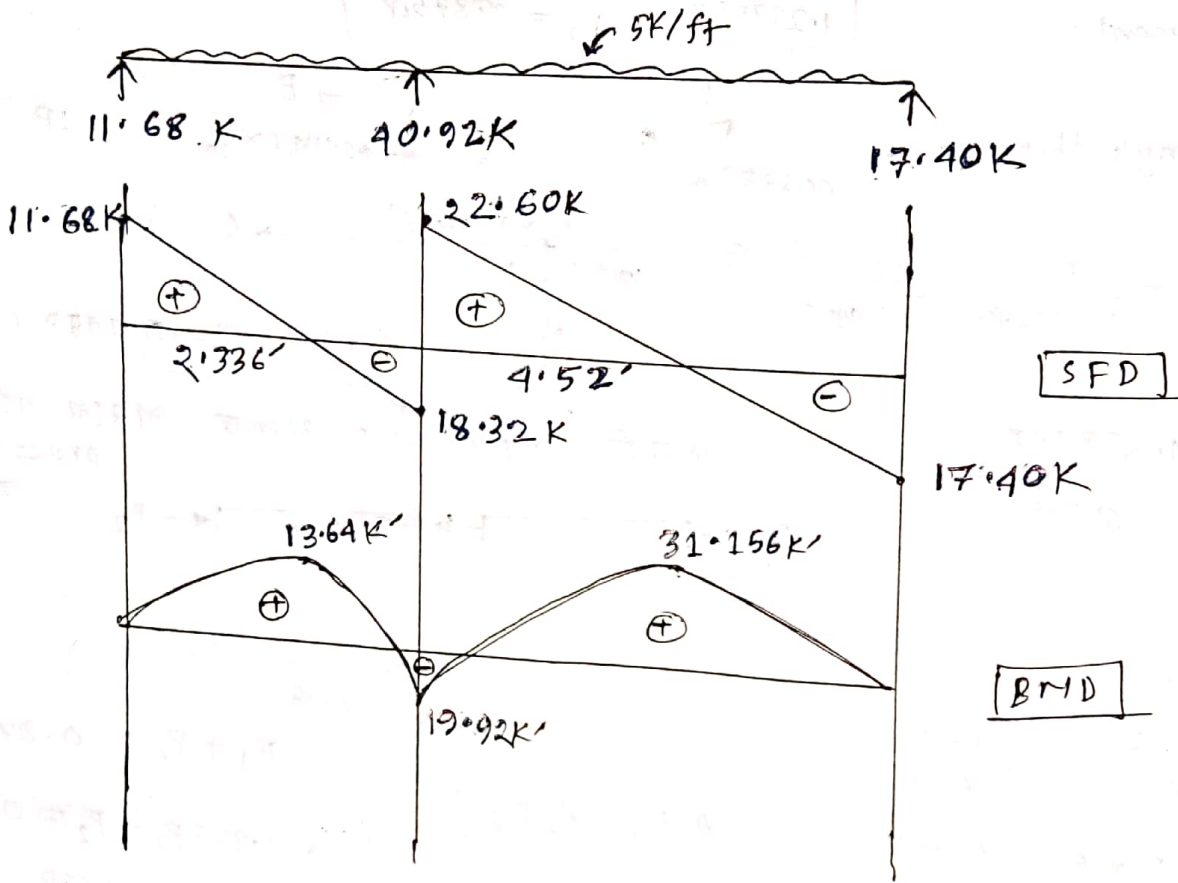 5K/ft
11.68 K 40.92K 17.40K
11.68K 22.60K
+ +
2.336' - 4.52' - SFD
18.32 K
17.40K
13.64K' 31.156K'
+ +
-
BMD
19.92K'